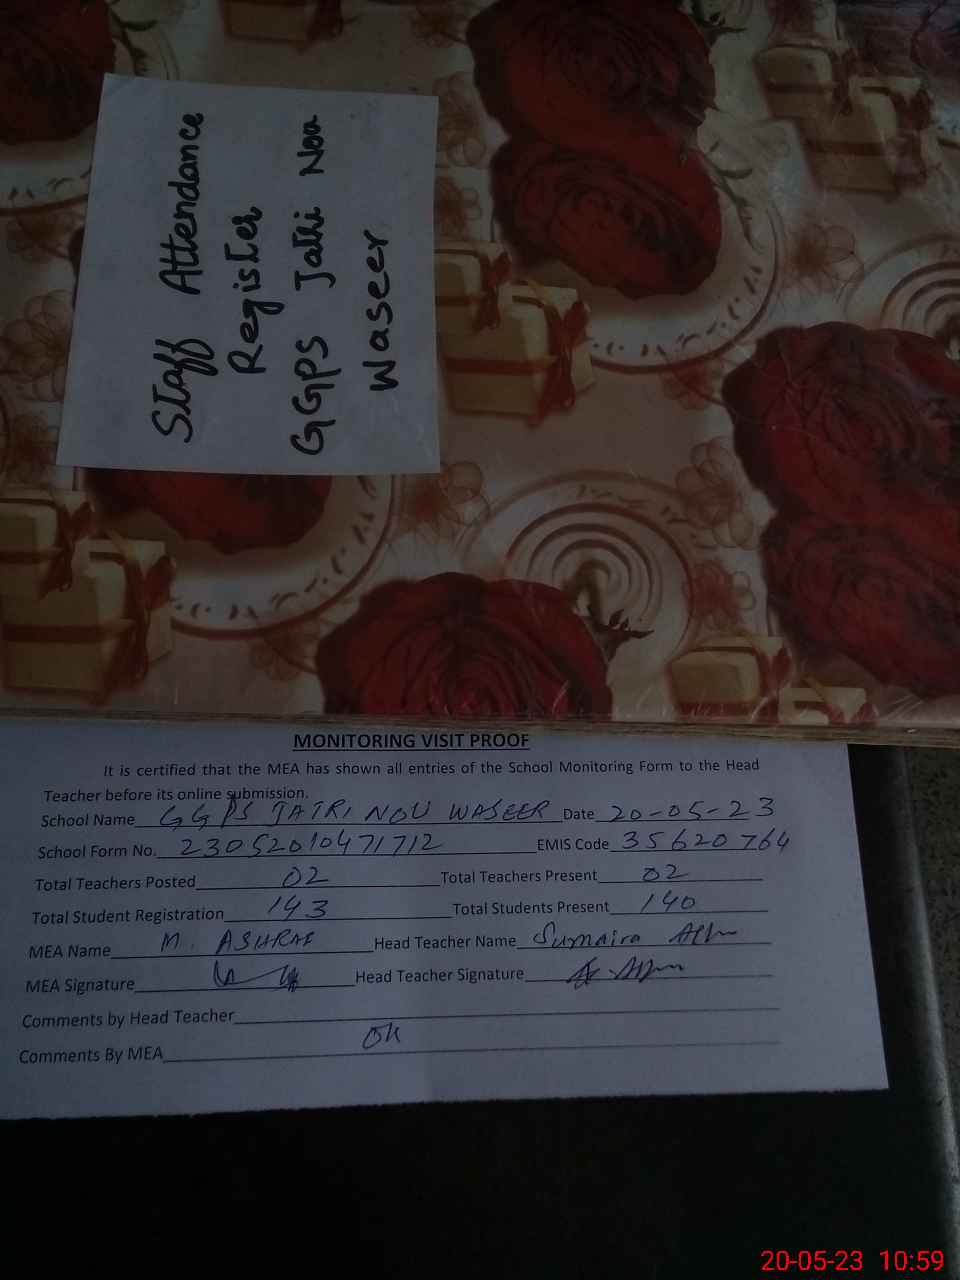 Staff Attendance
Register
GGPS Jatri Nou
Waseer
MONITORING VISIT PROOF
It is certified that the MEA has shown all entries of the School Monitoring Form to the Head
Teacher before its online submission.
School Name GGPS JATRI NOU WASEER Date 20-05-23
School Form No. 23052010471712 EMIS Code 35620764
Total Teachers Posted 02 Total Teachers Present 02
Total Student Registration 143 Total Students Present 140
MEA Name M. ASHRAF Head Teacher Name Sumaira
MEA Signature Head Teacher Signature
Comments by Head Teacher
Comments By MEA Ok
20-05-23 10:59